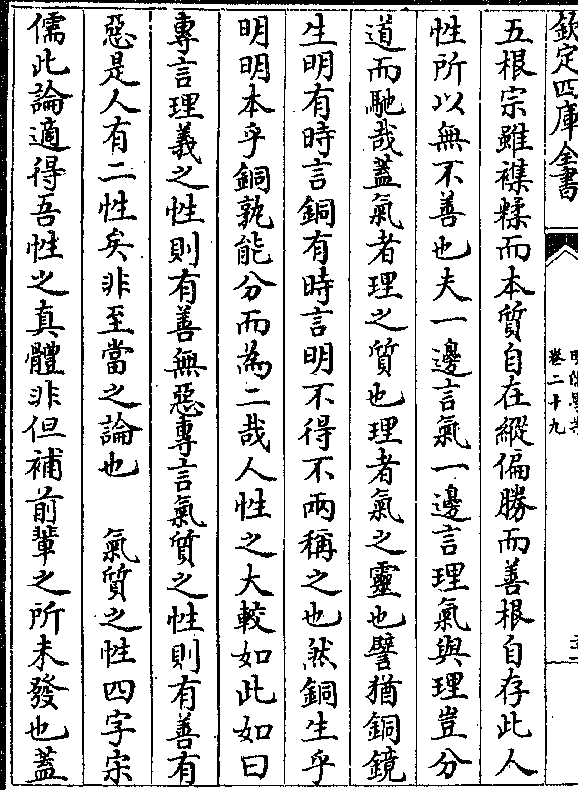 欽定四庫全書
卷二十九
五根宗雖襍糅而本質自在縱偏勝而善根自存此人
性所以無不善也夫一邊言氣一邊言理氣與理豈分
道而馳哉蓋氣者理之質也理者氣之靈也譬猶銅鏡
生明有時言銅有時言明不得不兩稱之也然銅生乎
明明本乎銅孰能分而為二哉人性之大較如此如曰
專言理義之性則有善無惡專言氣質之性則有善有
惡是人有二性矣非至當之論也　氣質之性四字宗
儒此論適得吾性之真體非但補前輩之所未發也蓋